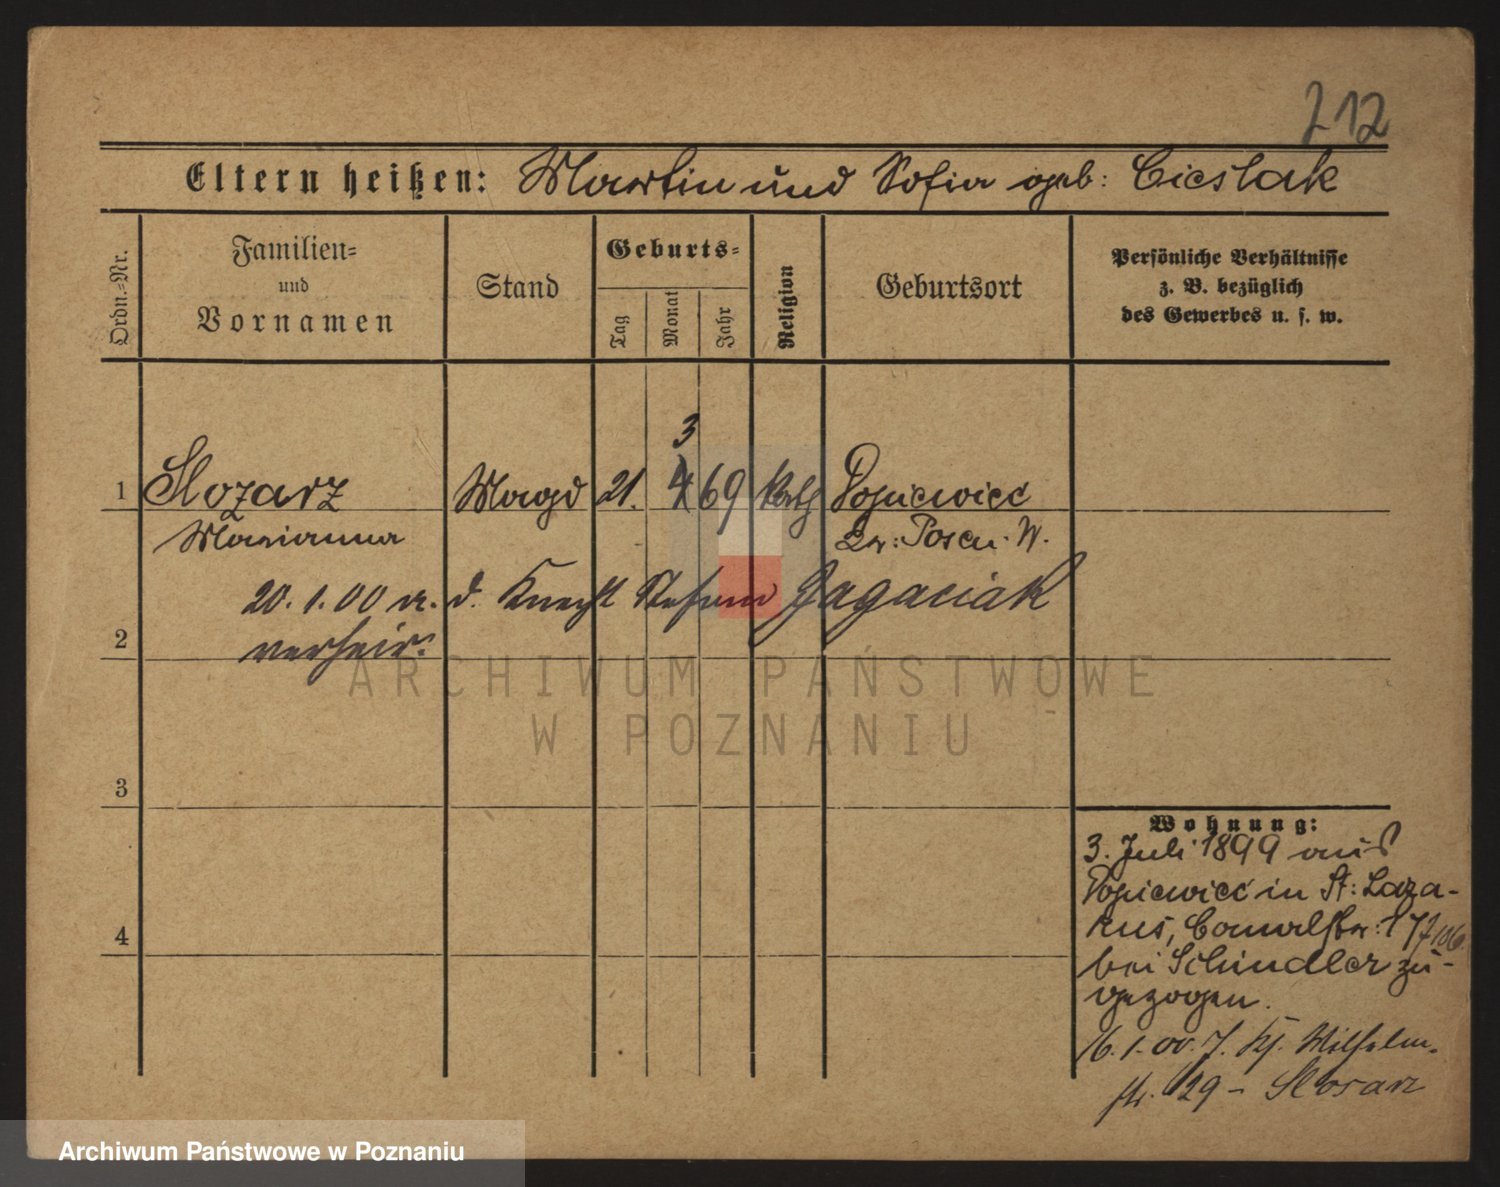 212
Eltern heißen: Martin und Sofia geb: Cieslak
Ordn.-Nr.
Familien-
und
Vornamen
Stand
Geburts-
Tag
Monat
Jahr
Religion
Geburtsort
Persönliche Verhältnisse
z. B. bezüglich
des Gewerbes u. s. w.
3
1 Slozarz Magd 21. 4 69 kath Popiewiec
Marianna Kr: Posen. W.
20. 1. 00 m. d. Knecht Stefan Gagaciak
2 verheir:
ARCHIWUM PAŃSTWOWE
W POZNANIU
3
Wohnung:
3. Juli 1899 aus
Popiewiec in St: Laza-
4 rus, 177
bei Schindler zu-
gezogen.
6. 1. 00. Wilhelm-
str. 29 - Slosarz
Archiwum Państwowe w Poznaniu